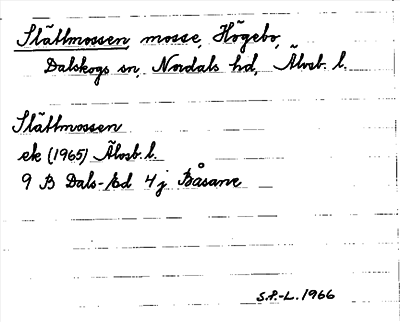 Slättmossen, mosse, Högebo,
Dalskogs sn, Nordals hd, Älvsb. l.
Slättmossen
ek (1965) Älvsb. l.
9 B Dals-Ed 4 j Båsane
S.P.-L. 1966